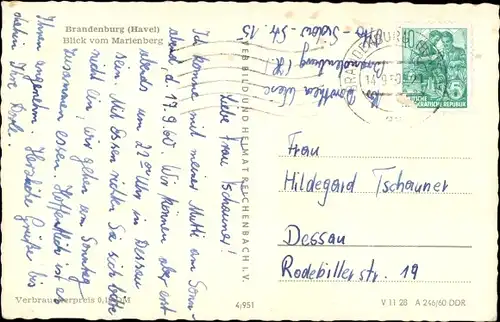 Brandenburg (Havel)
Blick vom Marienberg
Liebe Frau Tschauner!
Ich komme mit meiner Mutti am Sonn-
abend d. 17.9.60. Wir können aber erst
abends um 22 Uhr in Dessau
sein. Mit Essen richten Sie sich bitte
nicht ein! Wir gehen am Sonntag
zusammen essen. Hoffentlich ist es
Ihnen angenehm. Herzliche Grüße bis
dahin Ihre
Verbraucherpreis 0,15 DM
4/951
VEB BILD UND HEIMAT REICHENBACH I. V.
Dorothea
Brandenburg (H.)
Str. 15
BRANDENBURG
10
DEMOKRATISCHE REPUBLIK
Frau
Hildegard Tschauner
Dessau
Rodebillerstr. 19
V 11 28 A 246/60 DDR